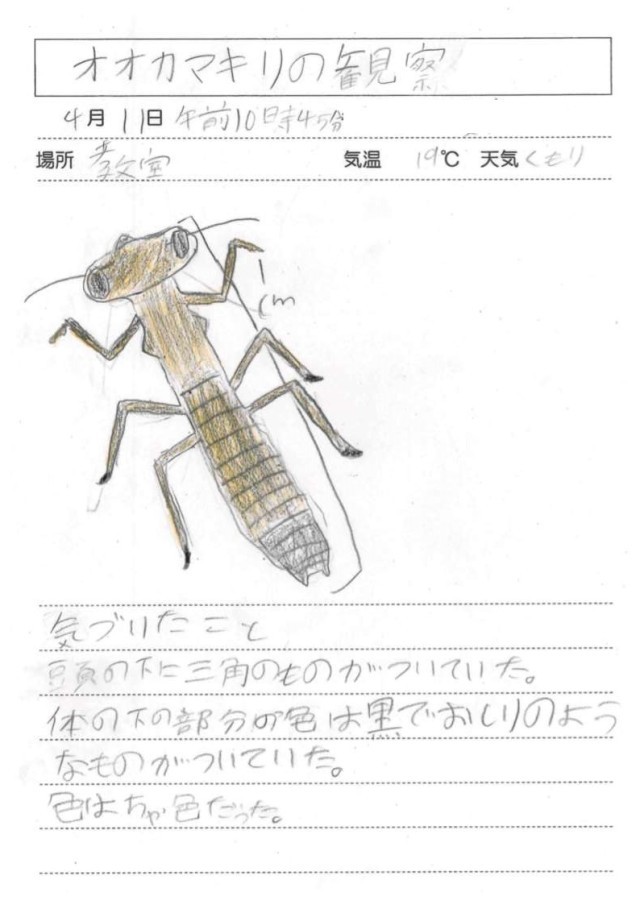 オオカマキリの観察
4月11日 午前10時45分
場所 教室 気温 19℃ 天気 くもり
1
cm
気づいたこと
頭の下に三角のものがついていた。
体の下の部分の色は黒でおしりのよう
なものがついていた。
色はちゃ色だった。